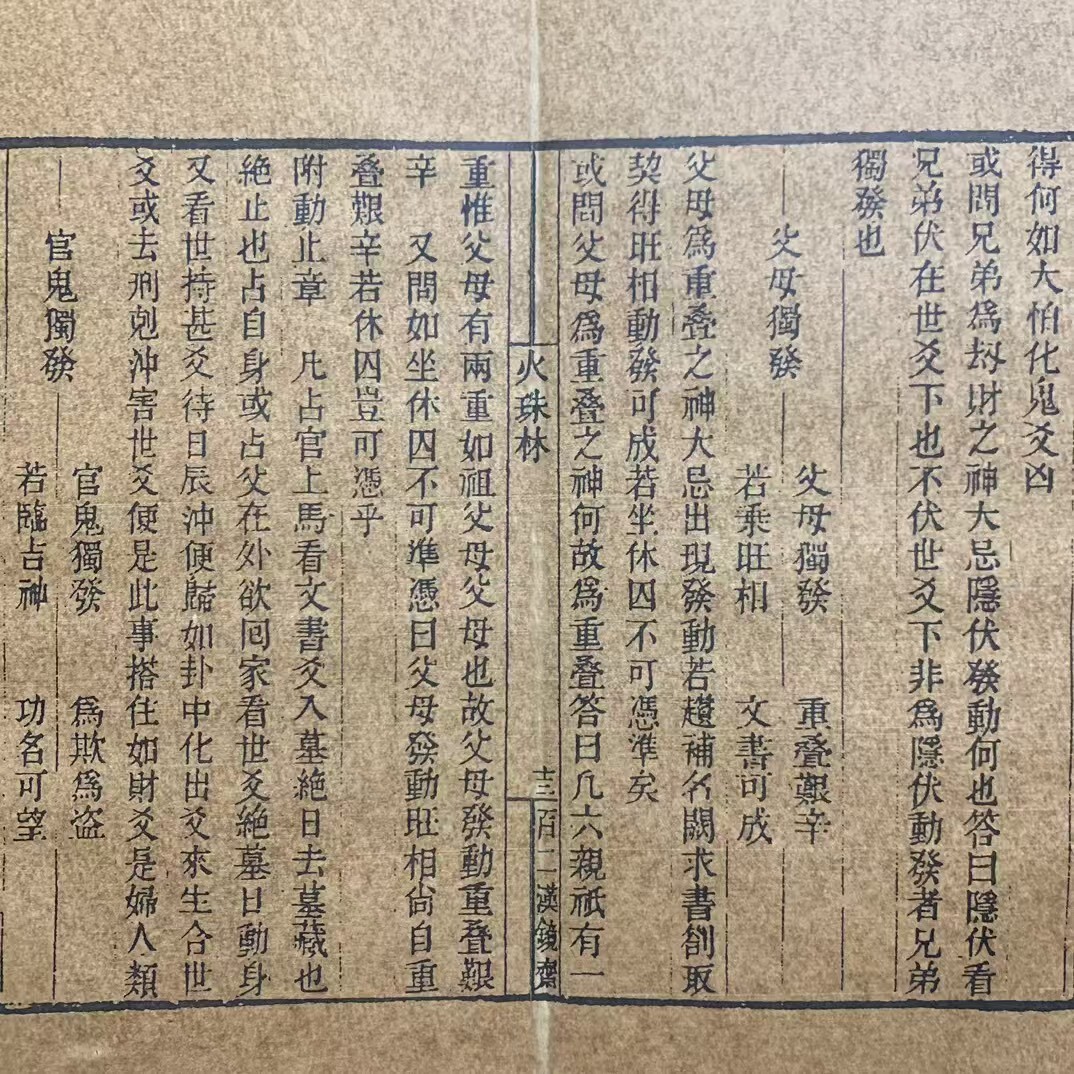 得何如大怕化鬼爻凶
或問兄弟爲刼財之神大忌隱伏發動何也答曰隱伏看
兄弟伏在世爻下也不伏世爻下非爲隱伏動發者兄弟
獨發也
父母獨發
父母獨發 重疊艱辛
若乘旺相 文書可成
父母爲重疊之神大忌出現發動若趲補名闕求書劄取
契得旺相動發可成若坐休囚不可憑準矣
或問父母爲重疊之神何故爲重疊答曰凡六親祇有一
火珠林
十三
百二漢鏡齋
重惟父母有兩重如祖父母父母也故父母發動重疊艱
辛 又問如坐休囚不可準憑曰父母發動旺相尙自重
疊艱辛若休囚豈可憑乎
附動止章 凡占官上馬看文書爻入墓絶日去墓藏也
絶止也占自身或占父在外欲囘家看世爻絶墓日動身
又看世持甚爻待日辰沖便歸如卦中化出爻來生合世
爻或去刑剋沖害世爻便是此事搭住如財爻是婦人類
官鬼獨發
官鬼獨發 爲欺爲盜
若臨吉神 功名可望